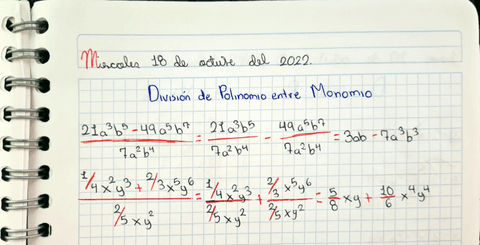 Miercoles 18 de octure del 2022.
División de Polinomio entre Monomio
21a³b⁵ - 49a⁵b⁷ / 7a²b⁴ = 21a³b⁵ / 7a²b⁴ - 49a⁵b⁷ / 7a²b⁴ = 3ab - 7a³b³
1/4x²y³ + 2/3x⁵y⁶ / 2/5xy² = 1/4x²y³ / 2/5xy² + 2/3x⁵y⁶ / 2/5xy² = 5/8xy + 10/6x⁴y⁴